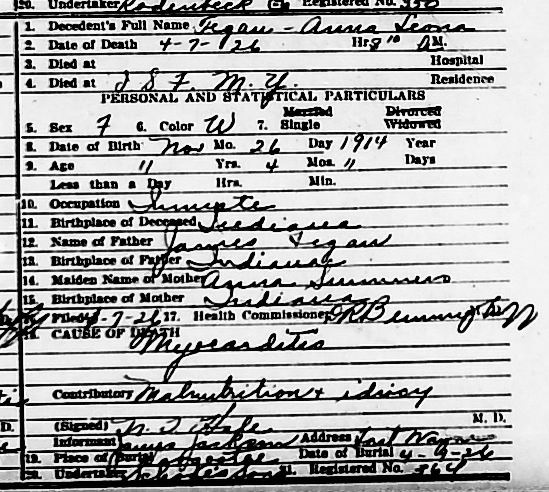 20. Undertaker Rodenbeck Registered No. 350
1. Decedent's Full Name Tegan - Anna Leona
2. Date of Death 4-7-26 Hr. 8 10 A M.
3. Died at Hospital
4. Died at I S F. M. Y. Residence
PERSONAL AND STATISTICAL PARTICULARS
5. Sex F 6. Color W 7. Married Single Divorced Widowed
8. Date of Birth Nov Mo. 26 Day 1914 Year
9. Age 11 Yrs. 4 Mos. 11 Days
Less than a Day Hrs. Min.
10. Occupation Inmate
11. Birthplace of Deceased Indiana
12. Name of Father James Tegan
13. Birthplace of Father Indiana
14. Maiden Name of Mother Anna Summers
15. Birthplace of Mother Indiana
Filed 4-7-26 17. Health Commissioner
CAUSE OF DEATH
Myocarditis
Contributory Malnutrition + idiocy
(Signed) M. D.
Informant Address Fort Wayne
19. Place of Burial Date of Burial 4-9-26
20. Undertaker 21. Registered No. 364